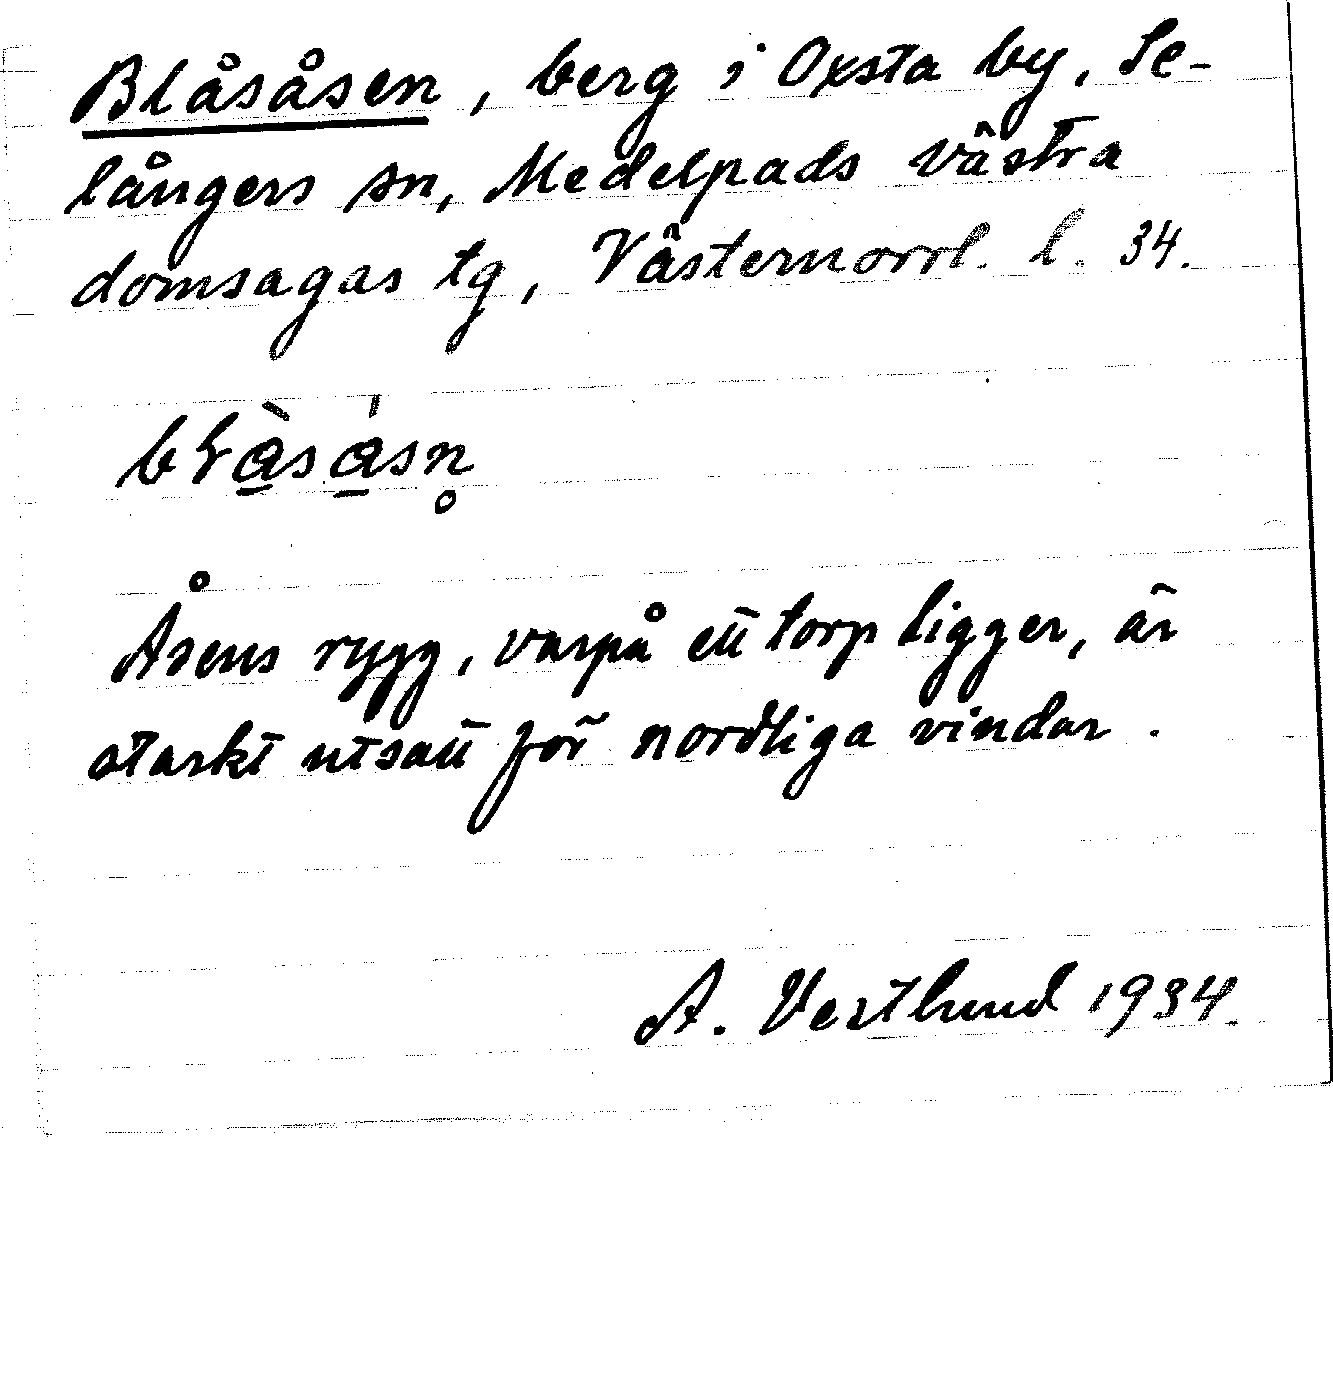 Blåsåsen, berg i Oxsta by, Se-
långers sn, Medelpads västra
domsagas tg, Västernorrl. l. 34.
Åsens rygg, varpå ett torp ligger, är
starkt utsatt för nordliga vindar.
A. Vestlund 1934.